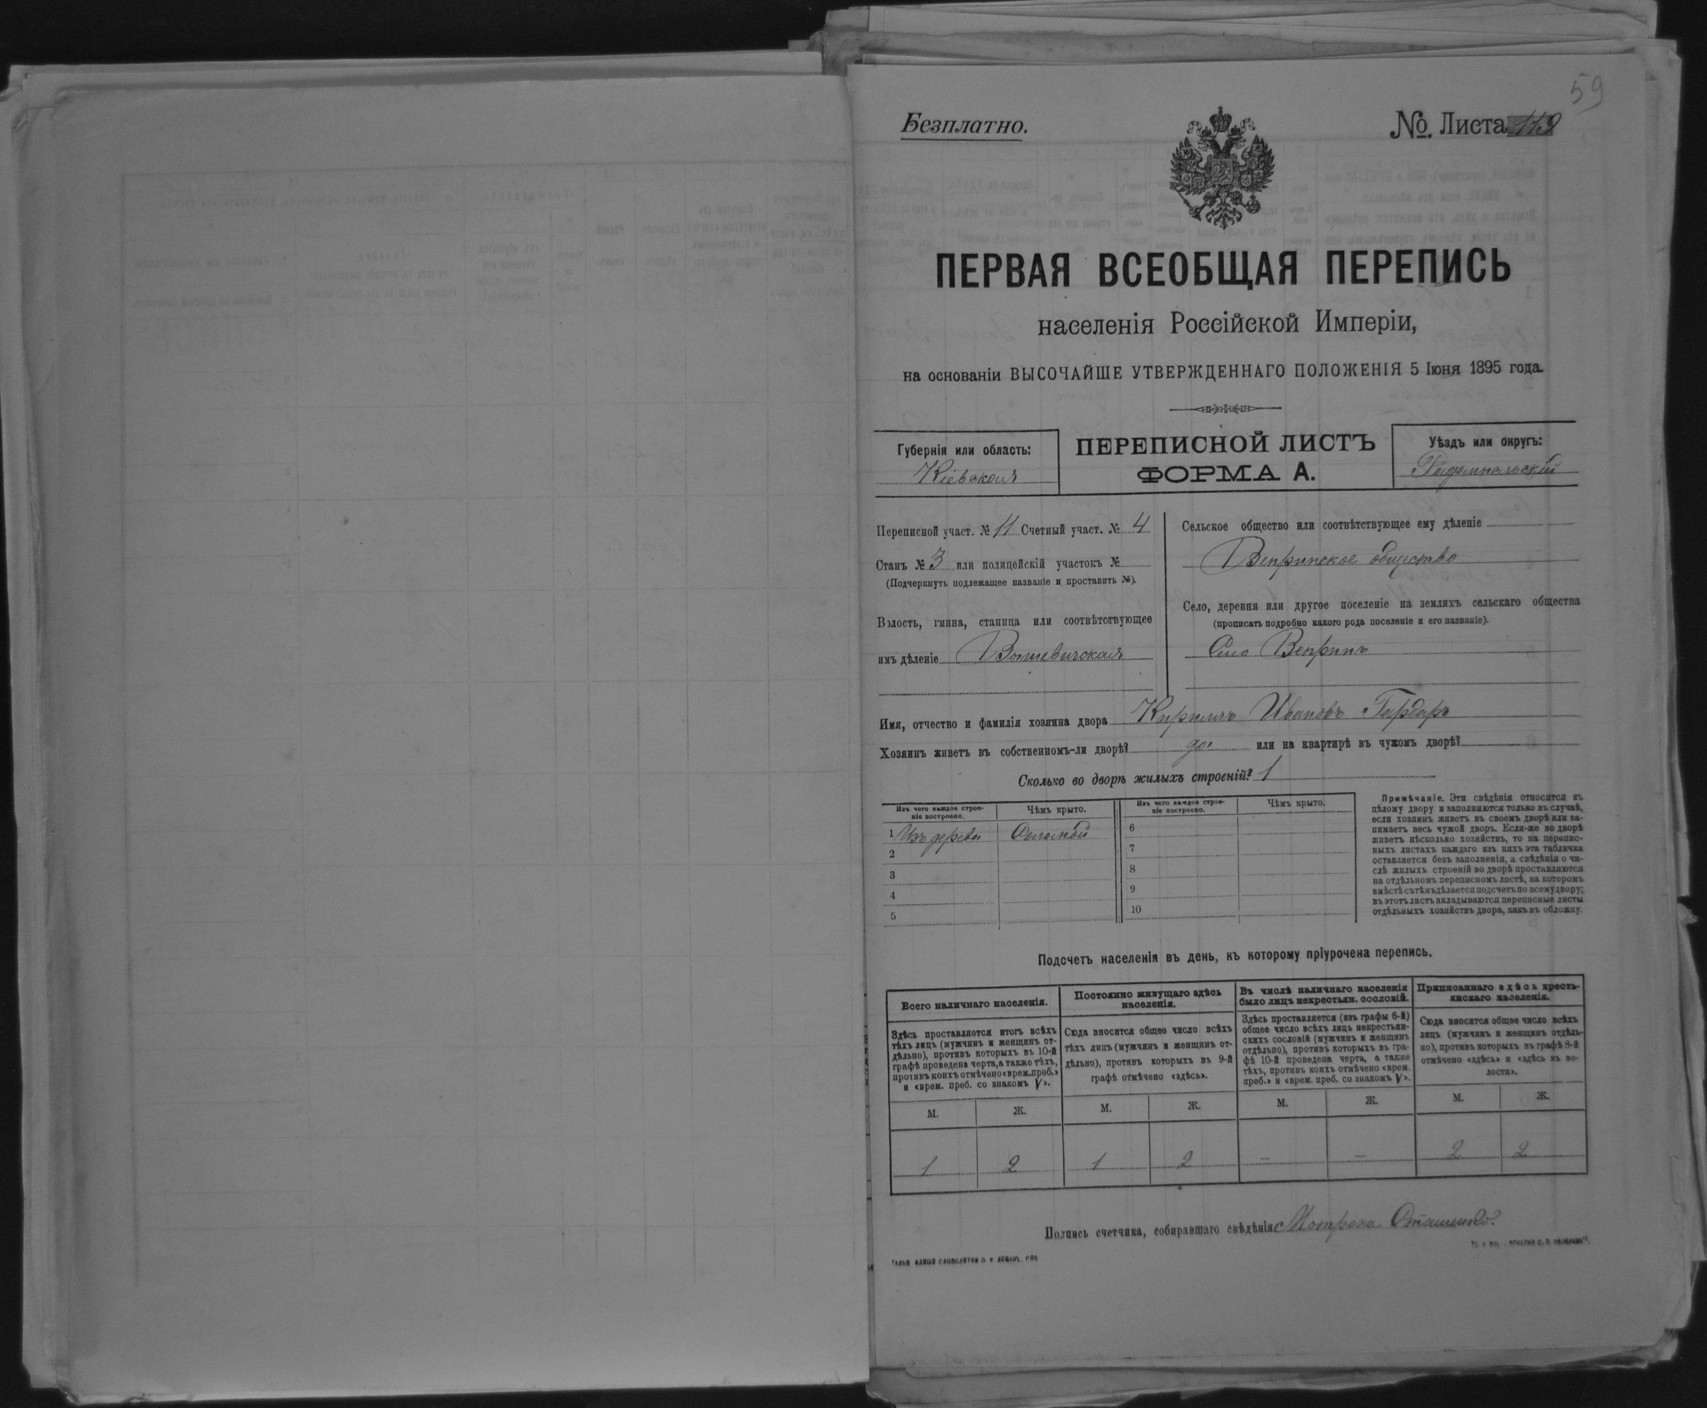 59
Безплатно.
№. Листа 119
ПЕРВАЯ ВСЕОБЩАЯ ПЕРЕПИСЬ
населенія Россійской Имперіи,
на основаніи ВЫСОЧАЙШЕ УТВЕРЖДЕННАГО ПОЛОЖЕНІЯ 5 Іюня 1895 года.
Губернія или область:
Кіевская
ПЕРЕПИСНОЙ ЛИСТЪ
ФОРМА А.
Уѣздъ или округъ:
Радомысльскій
Переписной участ. № 11 Счетный участ. № 4
Станъ № 3 или полицейскій участокъ №
(Подчеркнуть подлежащее названіе и проставить №).
Волость, гмина, станица или соотвѣтствующее
имъ дѣленіе Вышевичская
Сельское общество или соотвѣтствующее ему дѣленіе
Вепринское общество
Село, деревня или другое поселеніе на земляхъ сельскаго общества
(прописать подробно какого рода поселеніе и его названіе).
Село Вепринъ
Имя, отчество и фамилія хозяина двора Кириллъ Ивановъ
Хозяинъ живетъ въ собственномъ-ли дворѣ? да или на квартирѣ въ чужомъ дворѣ?
Сколько во дворѣ жилыхъ строеній? 1
Изъ чего каждое строе-
ніе построено.
Чѣмъ крыто.
1 Изъ дерева Соломой
2
3
4
5
Изъ чего каждое строе-
ніе построено.
Чѣмъ крыто.
6
7
8
9
10
Примѣчаніе. Эти свѣдѣнія относятся къ
цѣлому двору и заполняются только въ случаѣ,
если хозяинъ живетъ въ своемъ дворѣ или за-
нимаетъ весь чужой дворъ. Если-же во дворѣ
живетъ нѣсколько хозяйствъ, то на перепис-
ныхъ листахъ каждаго изъ нихъ эта табличка
оставляется безъ заполненія, а свѣдѣнія о чи-
слѣ жилыхъ строеній во дворѣ проставляются
на отдѣльномъ переписномъ листѣ, на которомъ
вмѣстѣ съ тѣмъ дѣлается подсчетъ по всему двору;
въ этотъ листъ вкладываются переписные листы
отдѣльныхъ хозяйствъ двора, какъ въ обложку.
Подсчетъ населенія въ день, къ которому пріурочена перепись.
Всего наличнаго населенія.
Здѣсь проставляется итогъ всѣхъ
тѣхъ лицъ (мужчинъ и женщинъ от-
дѣльно), противъ которыхъ въ 10-й
графѣ проведена черта, а также тѣхъ,
противъ коихъ отмѣчено «врем. преб.»
и «врем. преб. со знакомъ V».
Постоянно живущаго здѣсь
населенія.
Сюда вносится общее число всѣхъ
тѣхъ лицъ (мужчинъ и женщинъ от-
дѣльно), противъ которыхъ въ 9-й
графѣ отмѣчено «здѣсь».
Въ числѣ наличнаго населенія
было лицъ некрестьян. сословій.
Здѣсь проставляется (изъ графы 6-й)
общее число всѣхъ лицъ некрестьян-
скихъ сословій (мужчинъ и женщинъ
отдѣльно), противъ которыхъ въ гра-
фѣ 10-й проведена черта, а также
тѣхъ, противъ коихъ отмѣчено «врем.
преб.» и «врем. преб. со знакомъ V».
Приписаннаго здѣсь кресть-
янскаго населенія.
Сюда вносится общее число всѣхъ
лицъ (мужчинъ и женщинъ отдѣль-
но), противъ которыхъ въ графѣ 8-й
отмѣчено «здѣсь» и «здѣсь въ во-
лости».
М. Ж. М. Ж. М. Ж. М. Ж.
1 2 1 2 – – 2 2
Подпись счетчика, собиравшаго свѣдѣнія